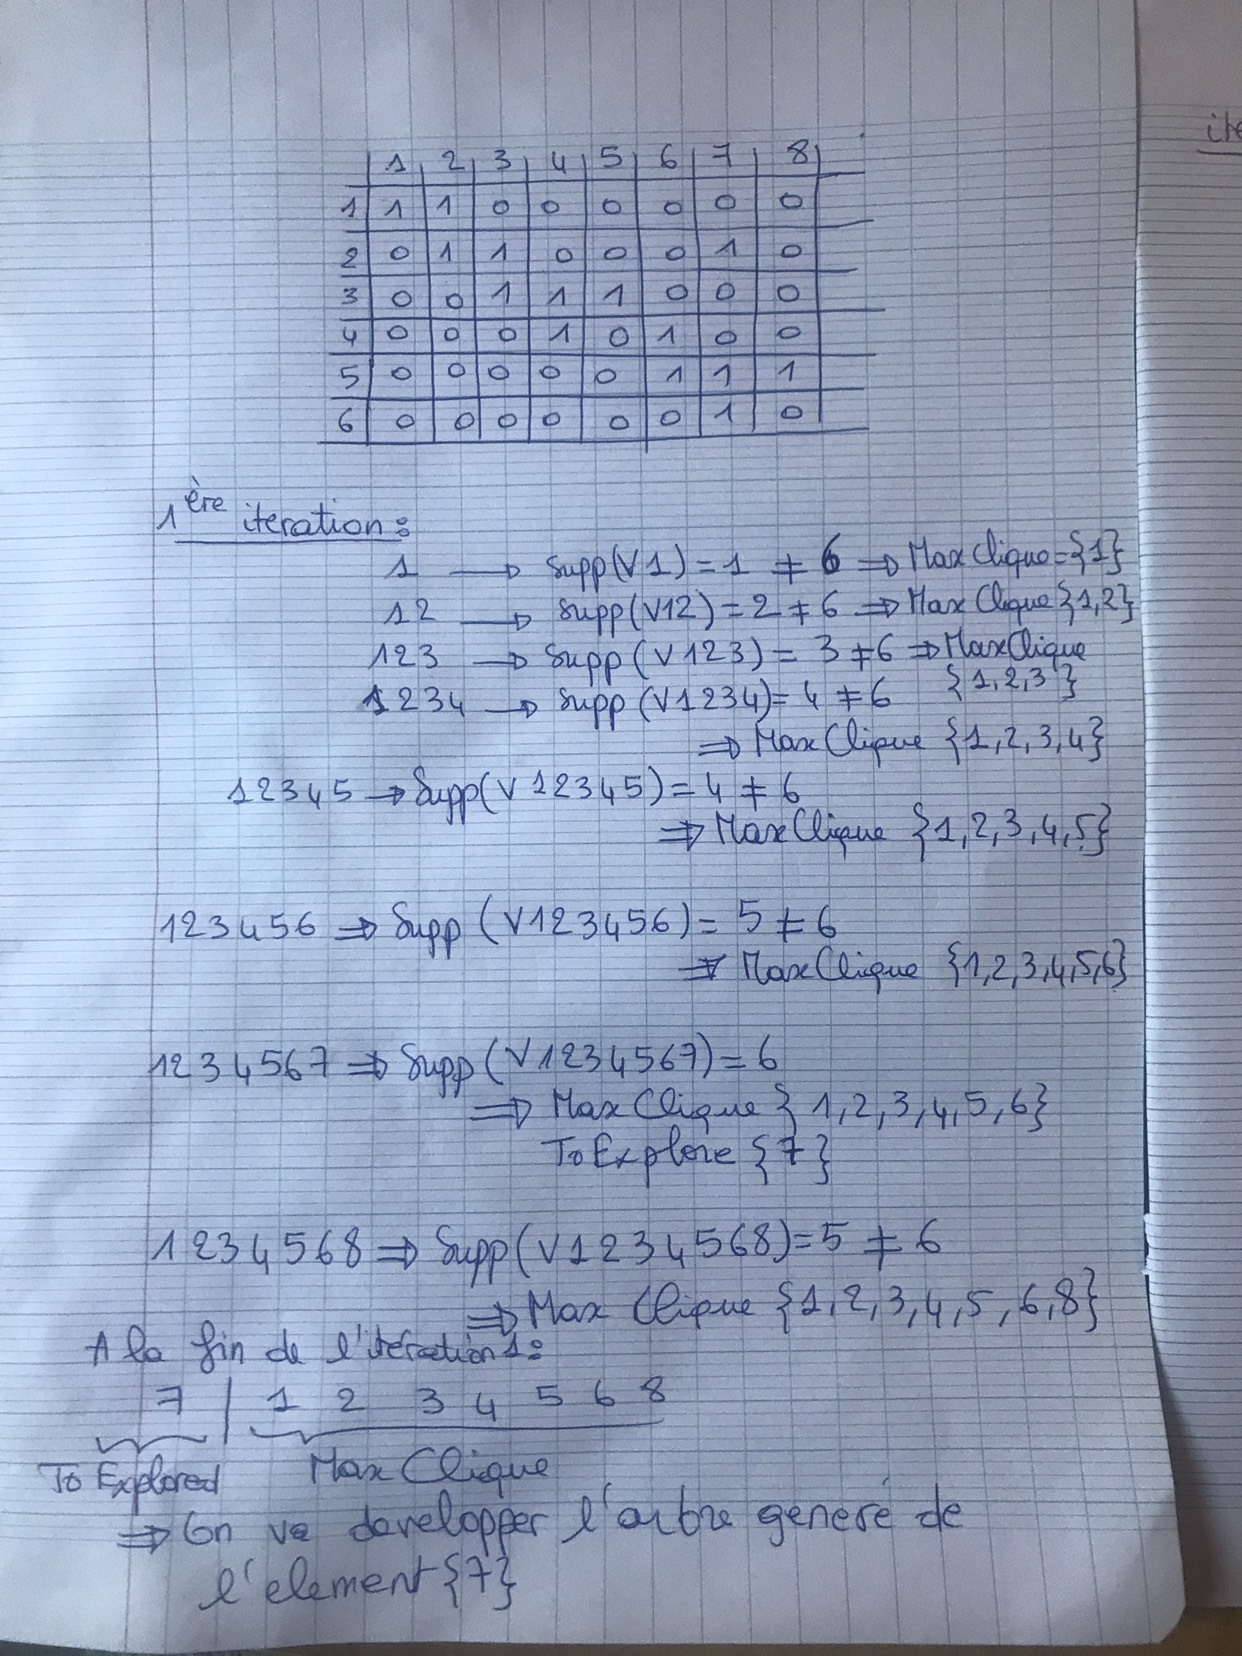 ite
1 2 3 4 5 6 7 8
1 1 1 0 0 0 0 0 0
2 0 1 1 0 0 0 1 0
3 0 0 1 1 1 0 0 0
4 0 0 0 1 0 1 0 0
5 0 0 0 0 0 1 1 1
6 0 0 0 0 0 0 1 0
1ère iteration :
1 → Supp(V1) = 1 ≠ 6 ⇒ MaxClique = {1}
12 → Supp(V12) = 2 ≠ 6 ⇒ MaxClique {1,2}
123 → Supp(V123) = 3 ≠ 6 ⇒ MaxClique
{1,2,3}
1234 → Supp(V1234) = 4 ≠ 6
⇒ MaxClique {1,2,3,4}
12345 → Supp(V12345) = 4 ≠ 6
⇒ MaxClique {1,2,3,4,5}
123456 ⇒ Supp(V123456) = 5 ≠ 6
⇒ MaxClique {1,2,3,4,5,6}
1234567 ⇒ Supp(V1234567) = 6
⇒ MaxClique {1,2,3,4,5,6}
To Explore {7}
1234568 ⇒ Supp(V1234568) = 5 ≠ 6
⇒ Max Clique {1,2,3,4,5,6,8}
A la fin de l'iteration 1 :
7 | 1 2 3 4 5 6 8
To Explored Max Clique
⇒ On va developper l'arbre generé de
l'element {7}